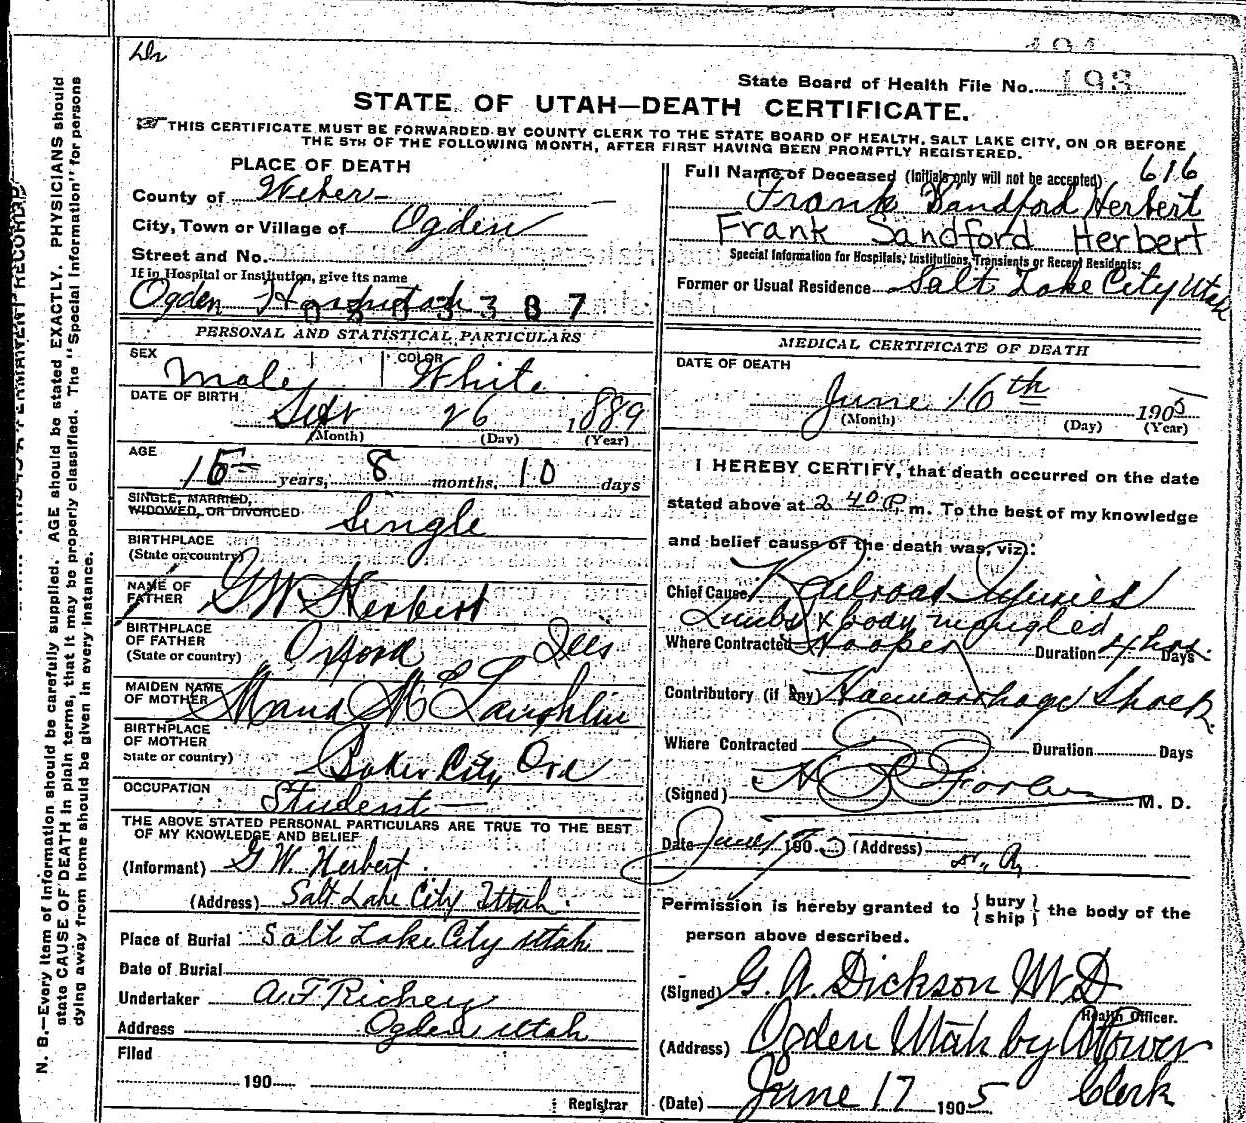 193
State Board of Health File No.
STATE OF UTAH—DEATH CERTIFICATE.
THIS CERTIFICATE MUST BE FORWARDED BY COUNTY CLERK TO THE STATE BOARD OF HEALTH, SALT LAKE CITY, ON OR BEFORE
THE 5TH OF THE FOLLOWING MONTH, AFTER FIRST HAVING BEEN PROMPTLY REGISTERED.
PLACE OF DEATH
County of Weber
City, Town or Village of Ogden
Street and No.
If in Hospital or Institution, give its name
Ogden Hospital
080 3 3 8 7
Full Name of Deceased (Initials only will not be accepted) 616
Frank Sandford Herbert
Frank Sandford Herbert
Special Information for Hospitals, Institutions, Transients or Recent Residents:
Former or Usual Residence Salt Lake City Utah
PERSONAL AND STATISTICAL PARTICULARS
SEX Male COLOR White
DATE OF BIRTH Sept 26 1889
(Month) (Day) (Year)
AGE 15 years, 8 months, 10 days
SINGLE, MARRIED,
WIDOWED, OR DIVORCED Single
BIRTHPLACE
(State or country)
NAME OF
FATHER G W Herbert
BIRTHPLACE
OF FATHER
(State or country) Oxford Ills
MAIDEN NAME
OF MOTHER Mana McLaughlin
BIRTHPLACE
OF MOTHER
State or country) Baker City Ore
OCCUPATION Student
THE ABOVE STATED PERSONAL PARTICULARS ARE TRUE TO THE BEST
OF MY KNOWLEDGE AND BELIEF
(Informant) G W. Herbert.
(Address) Salt Lake City Utah.
Place of Burial Salt Lake City Utah
Date of Burial
Undertaker A. F Richey
Address Ogden Utah
Filed
190
Registrar
MEDICAL CERTIFICATE OF DEATH
DATE OF DEATH
June 16th 1905
(Month) (Day) (Year)
I HEREBY CERTIFY, that death occurred on the date
stated above at 2 40 P. m. To the best of my knowledge
and belief cause of the death was, viz:
Chief Cause Railroad Injuries
Limbs & body mangled
Where Contracted Hooper Duration 4 hos. Days
Contributory (if any) Haemorrhage Shock
Where Contracted Duration Days
(Signed) M. D.
Date June 17 1905 (Address)
Permission is hereby granted to { bury / ship } the body of the
person above described.
(Signed) G. A. Dickson M D
Health Officer.
(Address) Ogden Utah by
Clerk
(Date) June 17 1905
N. B.—Every item of information should be carefully supplied. AGE should be stated EXACTLY. PHYSICIANS should
state CAUSE OF DEATH in plain terms, that it may be properly classified. The "Special Information" for persons
dying away from home should be given in every instance.